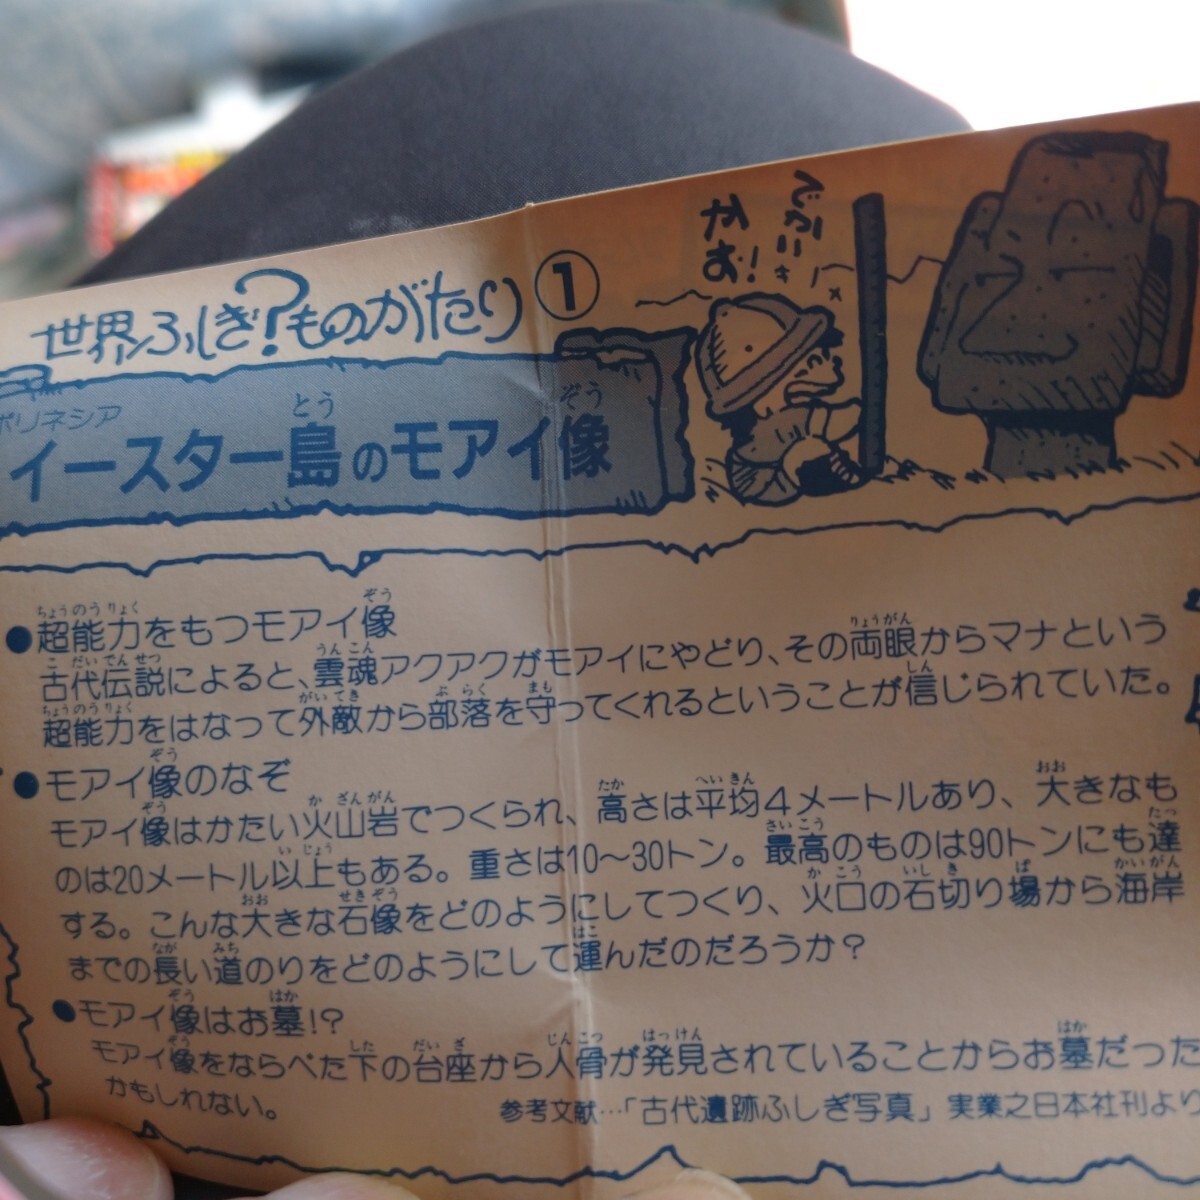 世界ふしぎ?ものがたり①
ポリネシア
イースター島のモアイ像
でけーなぁ!
●超能力をもつモアイ像
古代伝説によると、霊魂アクアクがモアイにやどり、その両眼からマナという
超能力をはなって外敵から部落を守ってくれるということが信じられていた。
●モアイ像のなぞ
モアイ像はかたい火山岩でつくられ、高さは平均4メートルあり、大きなも
のは20メートル以上もある。重さは10〜30トン。最高のものは90トンにも達
する。こんな大きな石像をどのようにしてつくり、火口の石切り場から海岸
までの長い道のりをどのようにして運んだのだろうか?
●モアイ像はお墓!?
モアイ像をならべた下の台座から人骨が発見されていることからお墓だった
かもしれない。
参考文献…「古代遺跡ふしぎ写真」実業之日本社刊より